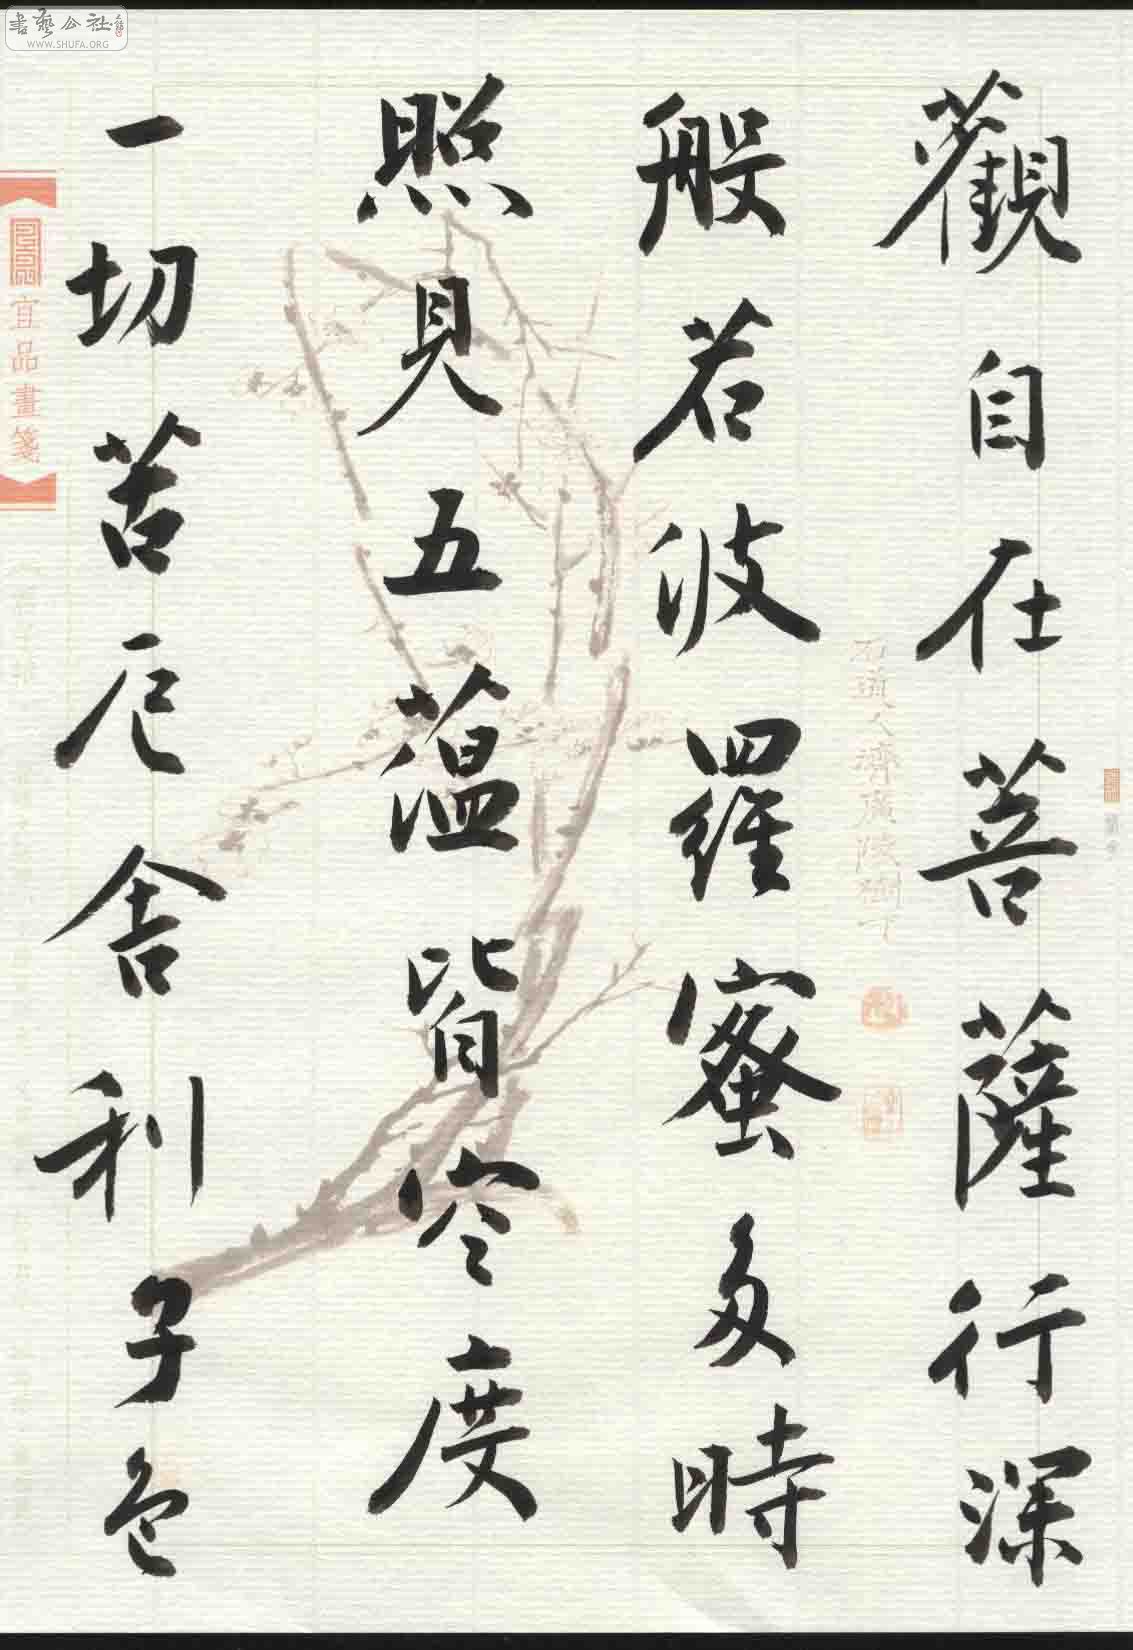 觀自在菩薩行深
般若波羅蜜多時
照見五蘊皆空度
一切苦厄舍利子色
宜品畫箋
書藝公社
WWW.SHUFA.ORG